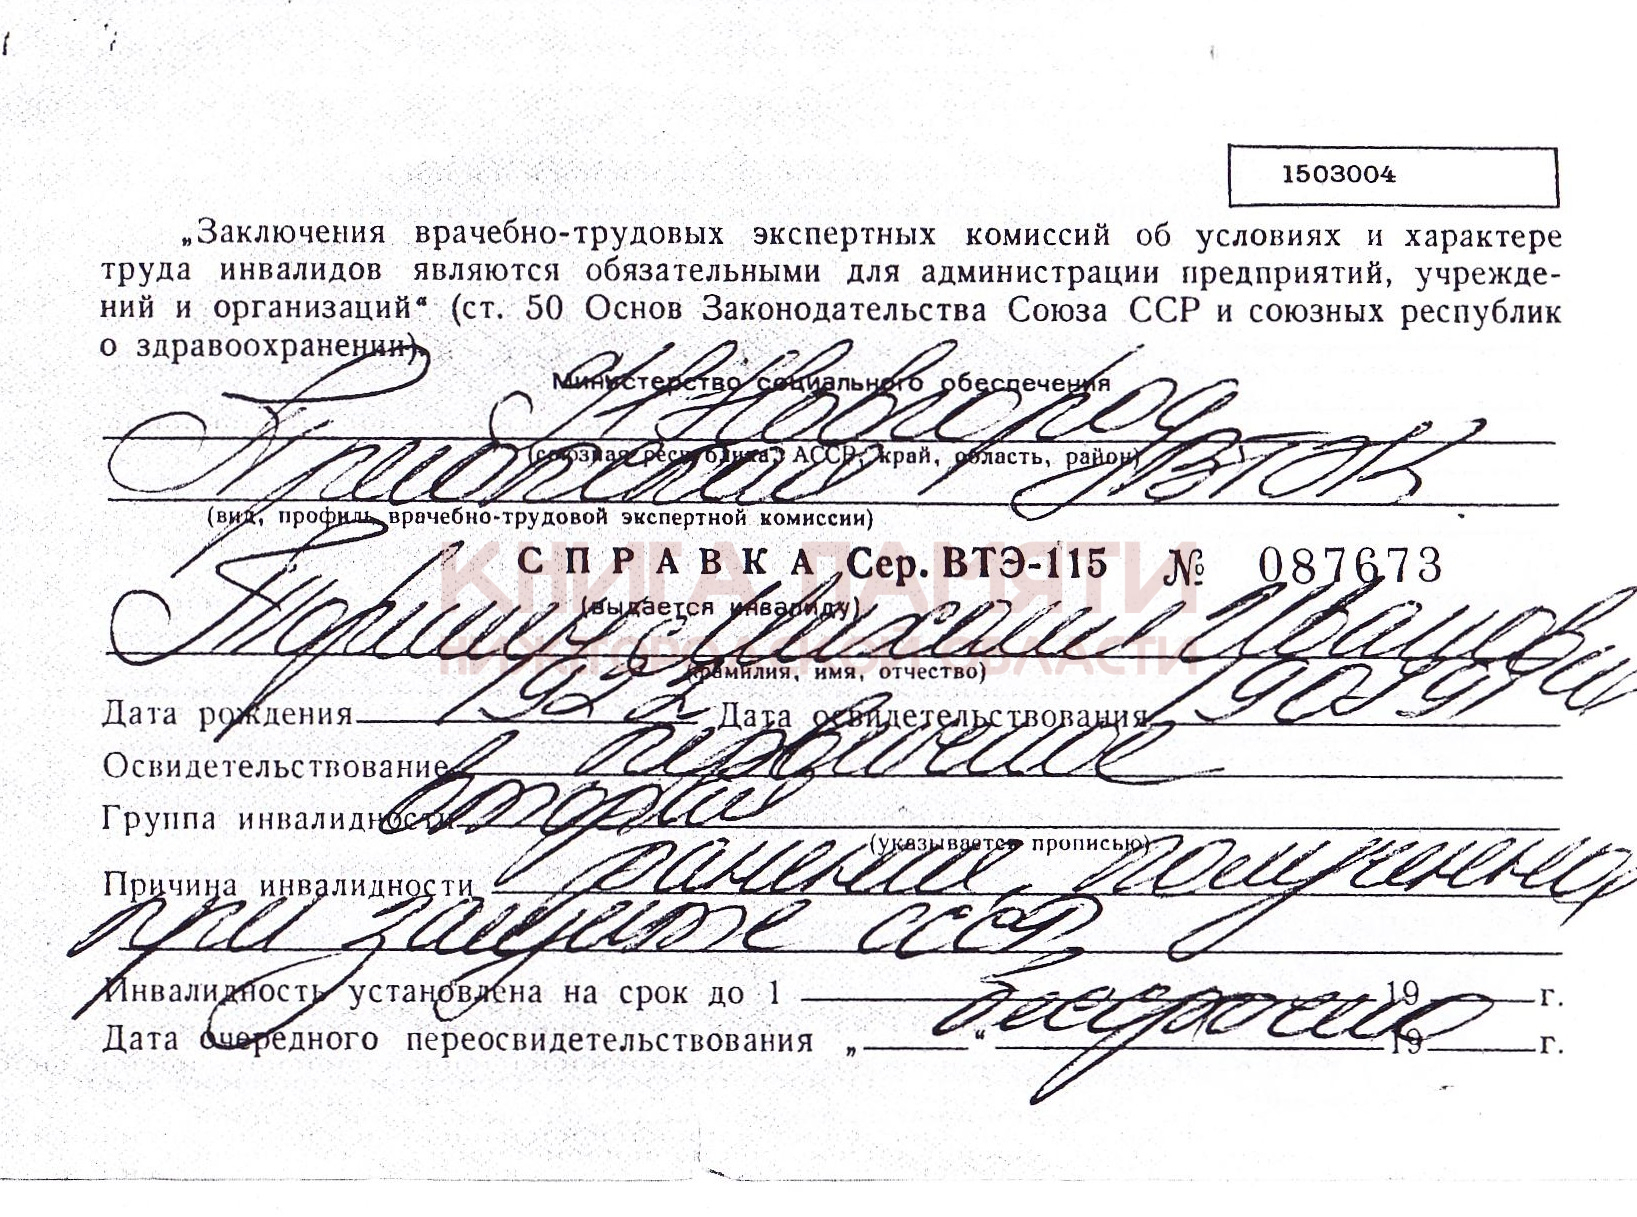 1503004
„Заключения врачебно-трудовых экспертных комиссий об условиях и характере
труда инвалидов являются обязательными для администрации предприятий, учрежде-
ний и организаций“ (ст. 50 Основ Законодательства Союза ССР и союзных республик
о здравоохранении).
Министерство социального обеспечения
Н Новгород
(союзная республика, АССР, край, область, район)
ВТЭК
(вид, профиль врачебно-трудовой экспертной комиссии)
СПРАВКА Сер. ВТЭ-115 № 087673
КНИГА ПАМЯТИ
(выдается инвалиду)
Михаил Иванович
НИЖЕГОРОДСКОЙ ОБЛАСТИ
(фамилия, имя, отчество)
Дата рождения 1922 Дата освидетельствования
Освидетельствование первичное
Группа инвалидности вторая
(указывается прописью)
Причина инвалидности ранение, полученное
при защите СССР
Инвалидность установлена на срок до 1 бессрочно 19 г.
Дата очередного переосвидетельствования „ “ 19 г.